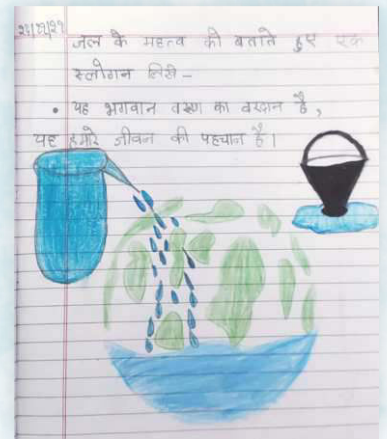 जल के महत्व को बताते हुए एक
स्लोगन लिखे –
• यह भगवान वरुण का वरदान है,
यह हमारे जीवन की पहचान है।